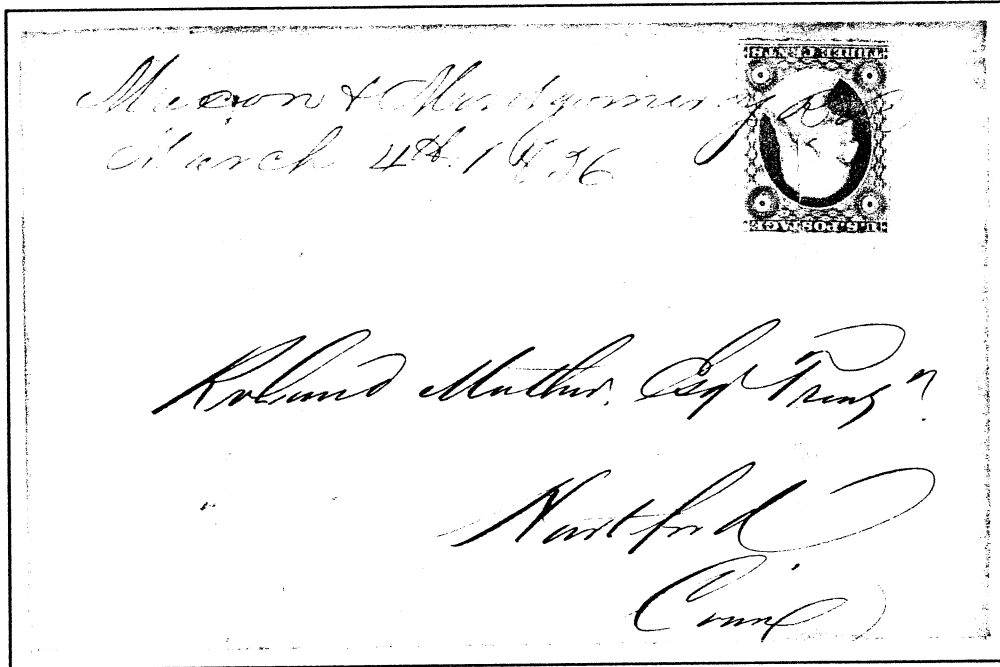 Macon & Montgomery R.R.
March 4th 1856
THREE CENTS
U.S. POSTAGE
Roland Mather. Esq Treasr
Hartford
Conn